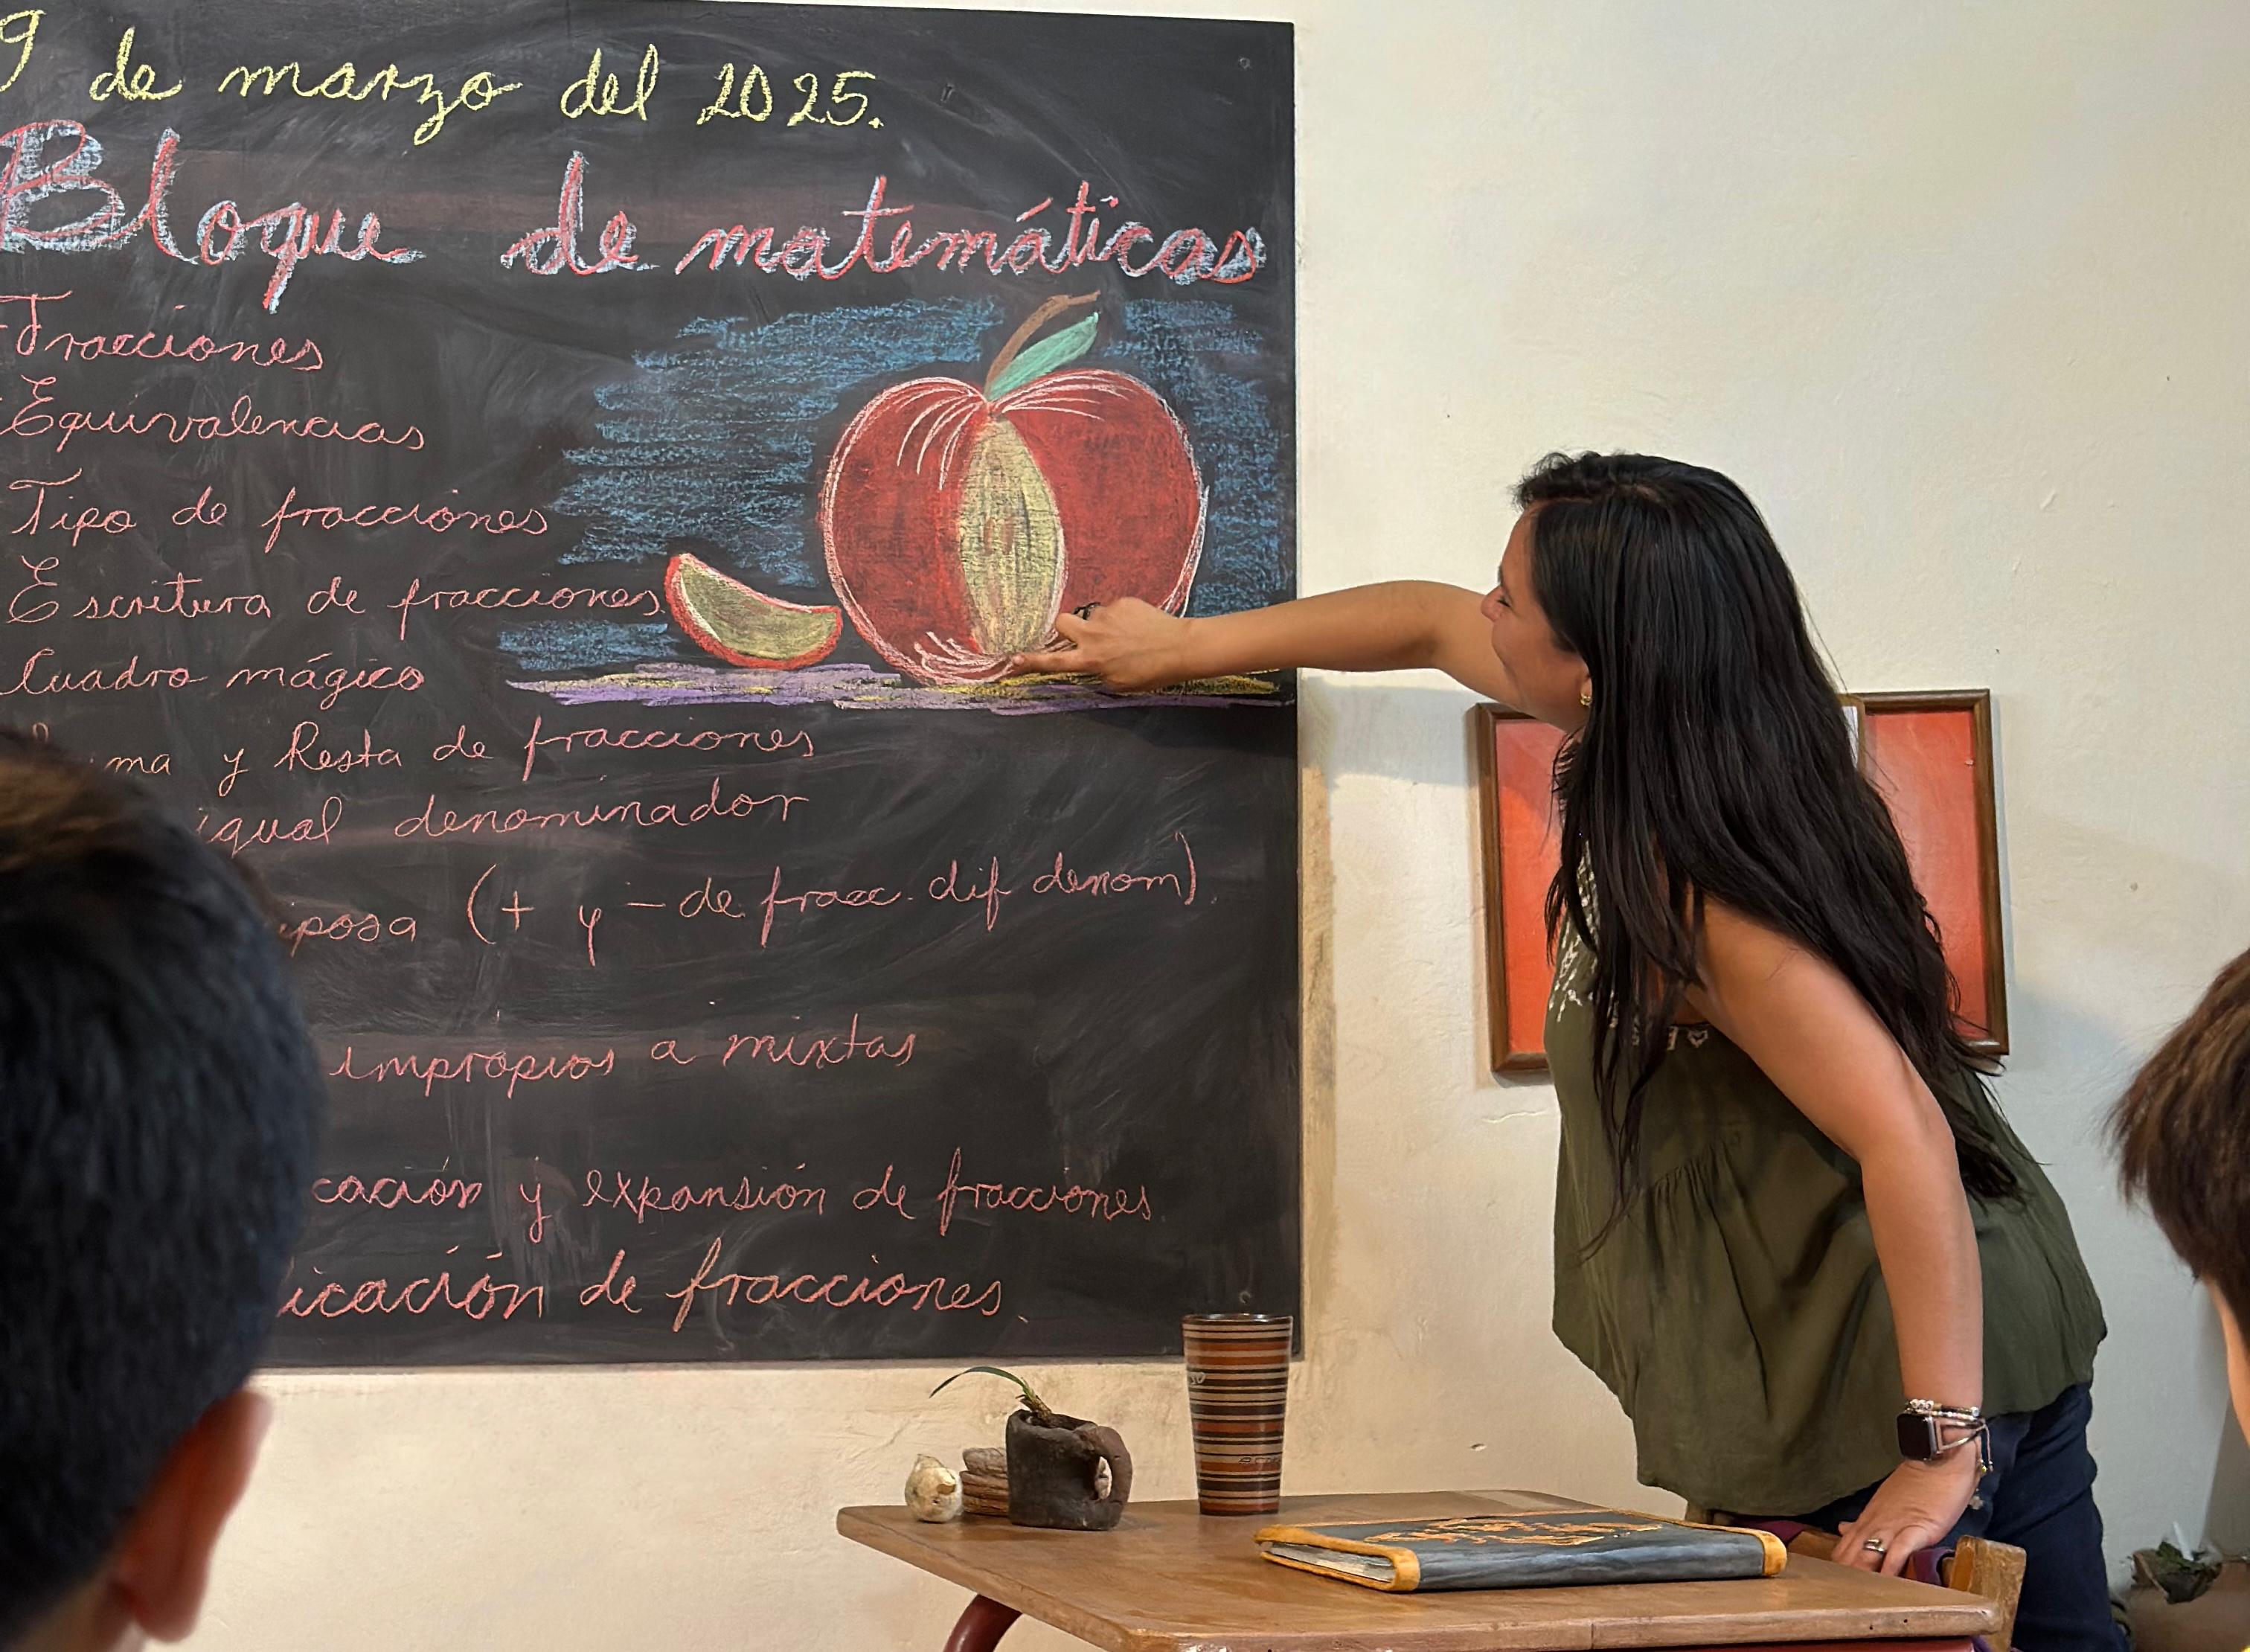 9 de marzo del 2025.
Bloque de matemáticas
Fracciones
Equivalencias
Tipo de fracciones
Escritura de fracciones
Cuadro mágico
y Resta de fracciones
igual denominador
(+ y - de fracc. dif denom).
impropias a mixtas
y expansión de fracciones
de fracciones.